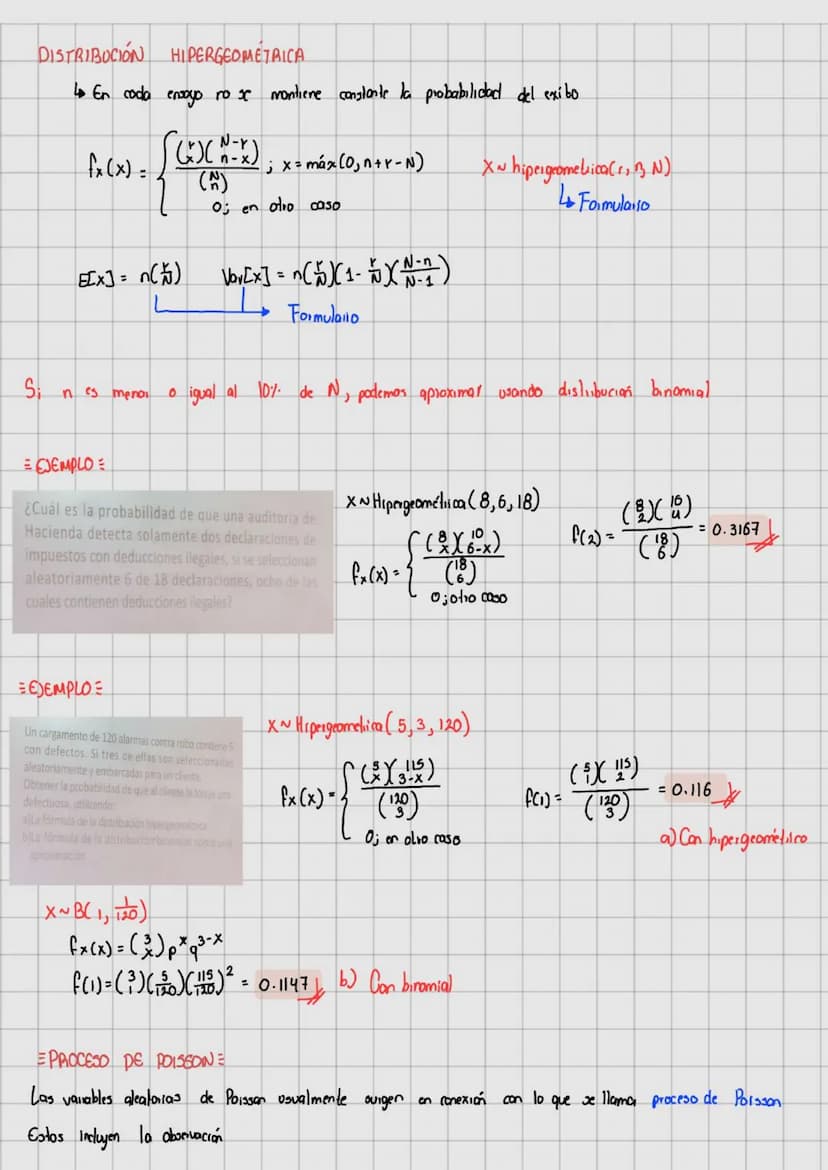 DISTRIBUCIÓN HIPERGEOMÉTRICA
↳ En cada ensayo no se mantiene constante la probabilidad del exito
fx(x) = { (r x)(N-r n-x) / (N n) ; x = máx(0, n+r-N)
0; en otro caso
X ~ hipergeometrica(r, n, N)
↳ Formulario
E[x] = n(r/N) Var[x] = n(r/N)(1 - r/N)(N-n/N-1)
Formulario
Si n es menor o igual al 10% de N, podemos aproximar usando distribución binomial
=EJEMPLO=
¿Cuál es la probabilidad de que una auditoria de
Hacienda detecta solamente dos declaraciones de
impuestos con deducciones ilegales, si se seleccionan
aleatoriamente 6 de 18 declaraciones, ocho de las
cuales contienen deducciones ilegales?
X ~ Hipergeométrica(8,6,18)
fx(x) = { (8 x)(10 6-x) / (18 6)
0; otro caso
f(2) = (8 2)(10 4) / (18 6) = 0.3167
=EJEMPLO=
Un cargamento de 120 alarmas contra robo contiene 5
con defectos. Si tres de ellas son seleccionadas
aleatoriamente y embarcadas para un cliente.
Obtener la probabilidad de que al cliente le toque una
defectuosa, utilizando:
a)La fórmula de la distribución hipergeométrica
b)La fórmula de la distribución binomial como una
aproximación
X ~ Hipergeometrica(5, 3, 120)
fx(x) = { (5 x)(115 3-x) / (120 3)
0; en otro caso
f(1) = (5 1)(115 2) / (120 3) = 0.116
a) Con hipergeométrico
X ~ B(1, 1/120)
fx(x) = (3 x) p^x q^3-x
f(1) = (3 1)(5/120)(115/120)^2 = 0.1147 b) Con binomial
=PROCESO DE POISSON=
Las variables aleatorias de Poisson usualmente surgen en conexión con lo que se llama proceso de Poisson
Estos incluyen la observación